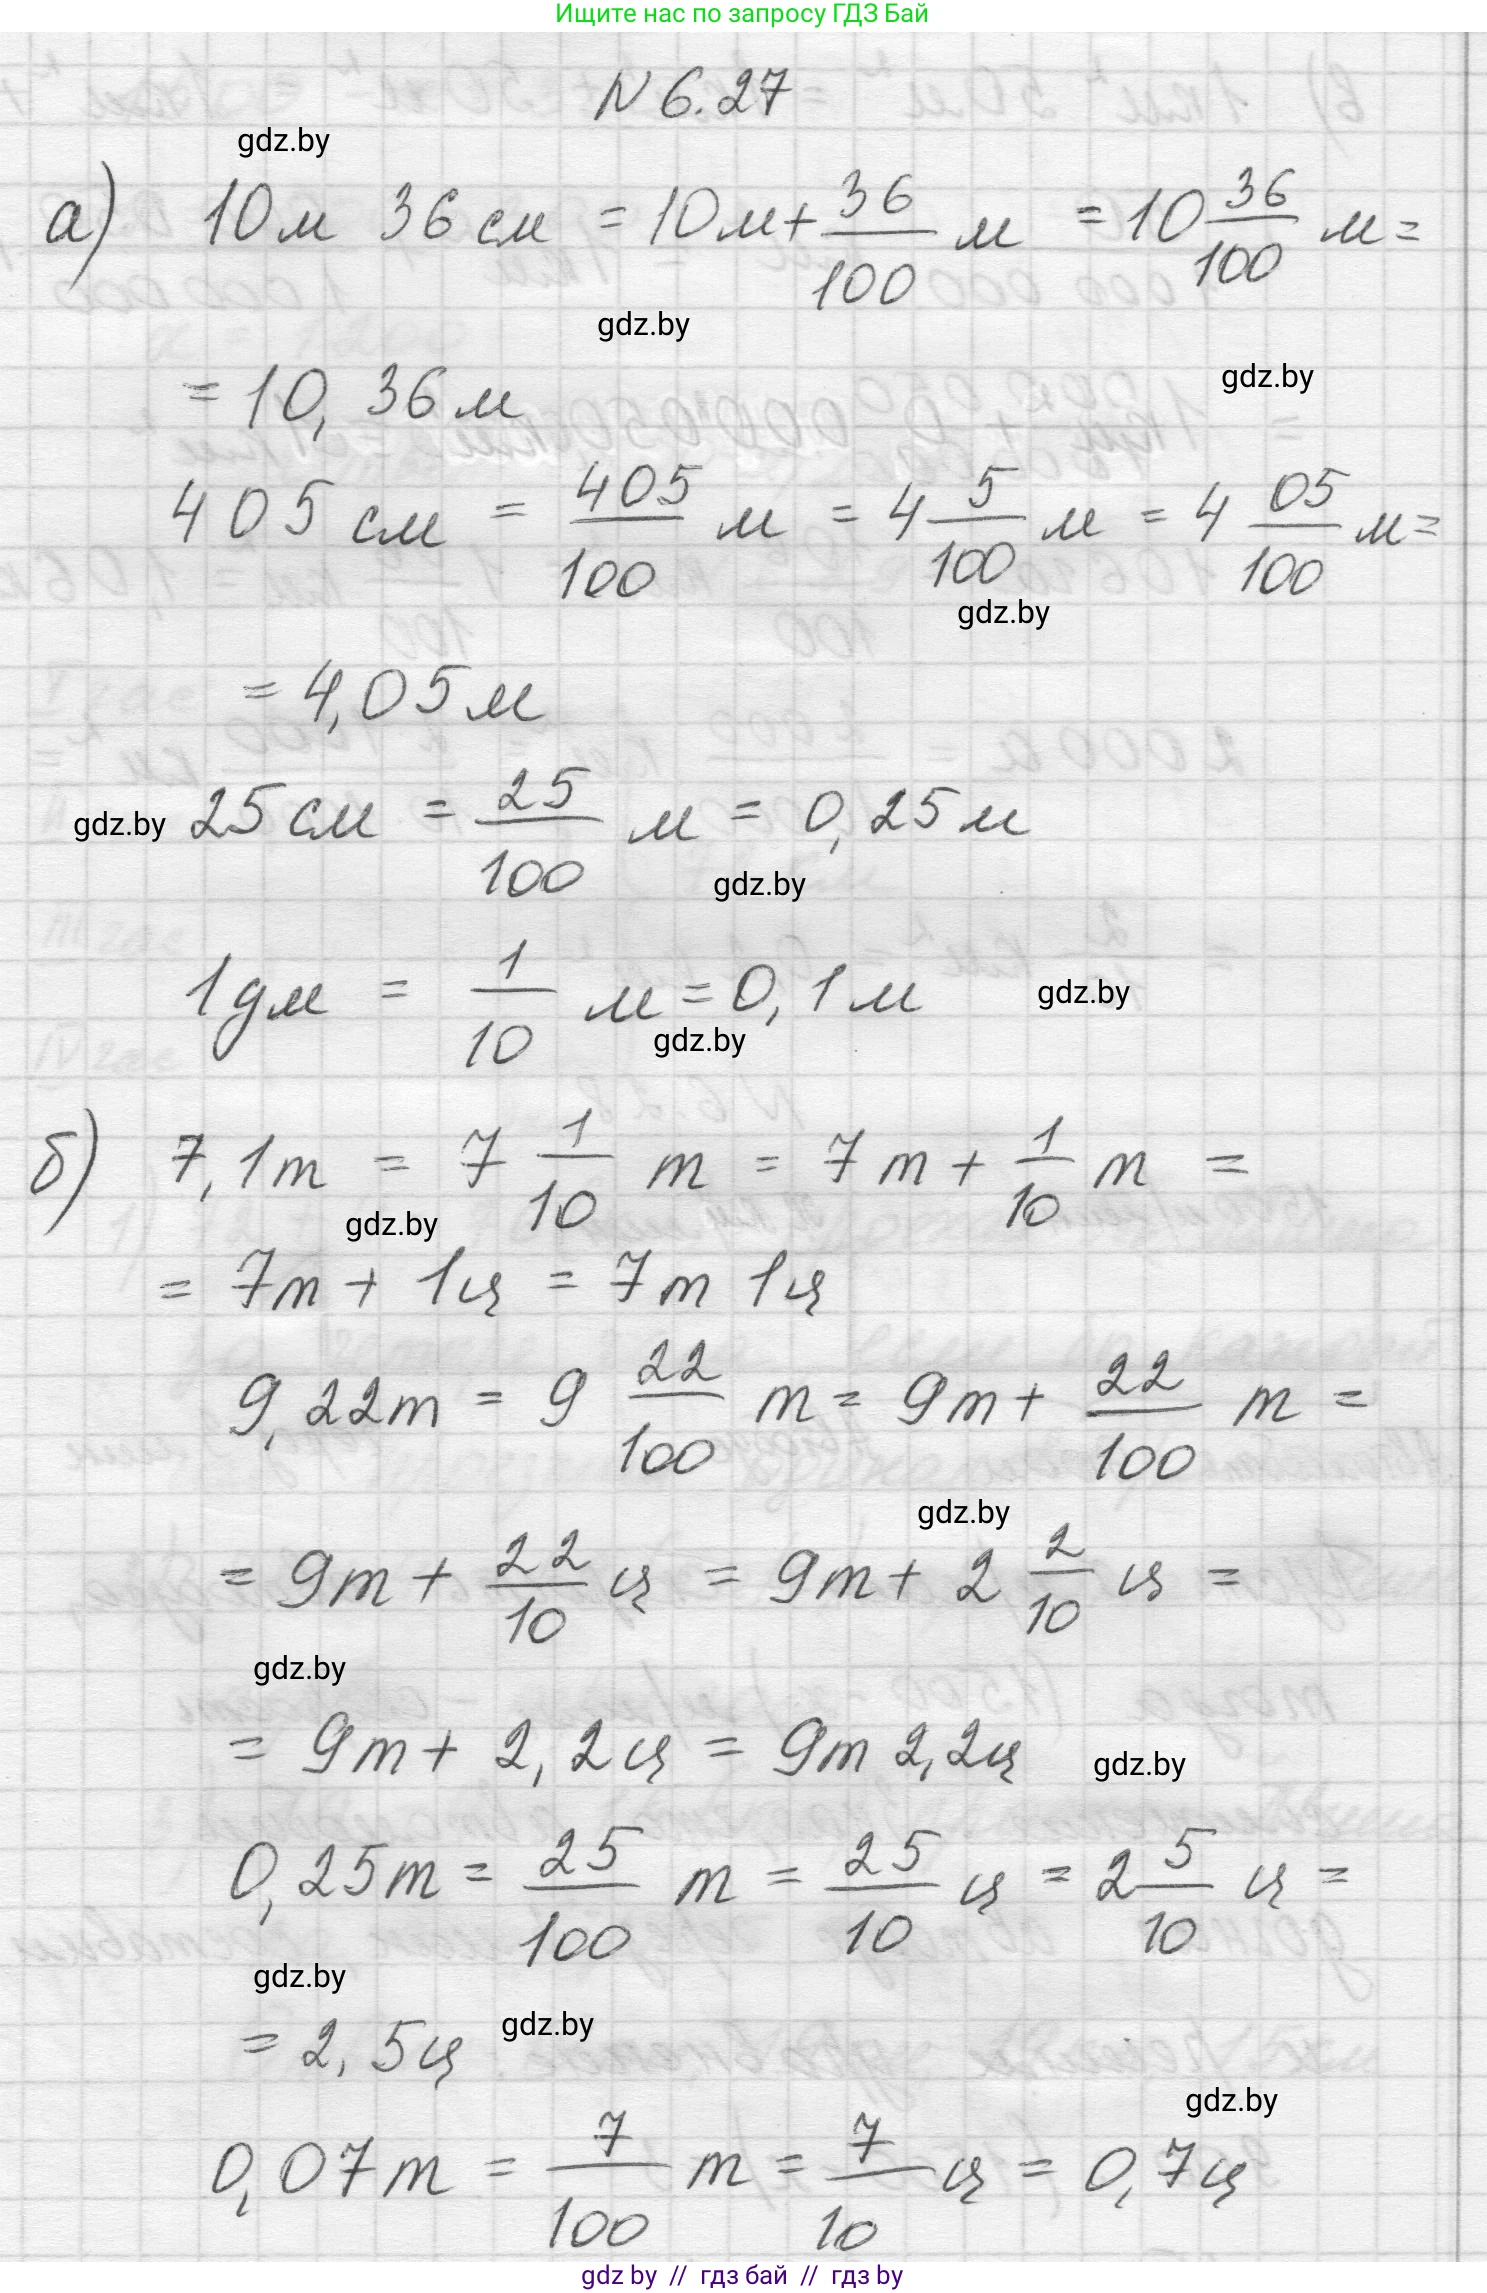 Ищите нас по запросу ГДЗ Бай
N 6.27
gdz.by
а) 10м 36 см = 10м + 36/100 м = 10 36/100 м =
gdz.by
gdz.by
= 10,36 м
405 см = 405/100 м = 4 5/100 м = 4 05/100 м =
gdz.by
= 4,05 м
gdz.by 25 см = 25/100 м = 0,25 м
gdz.by
1 дм = 1/10 м = 0,1 м gdz.by
gdz.by
б) 7,1т = 7 1/10 т = 7т + 1/10 т =
gdz.by
= 7т + 1ц = 7т 1ц
9,22т = 9 22/100 т = 9т + 22/100 т =
gdz.by
= 9т + 22/10 ц = 9т + 2 2/10 ц =
gdz.by
= 9т + 2,2ц = 9т 2,2ц gdz.by
0,25т = 25/100 т = 25/10 ц = 2 5/10 ц =
gdz.by
= 2,5ц gdz.by
gdz.by
0,07т = 7/100 т = 7/10 ц = 0,7ц
gdz.by // гдз бай // гдз by